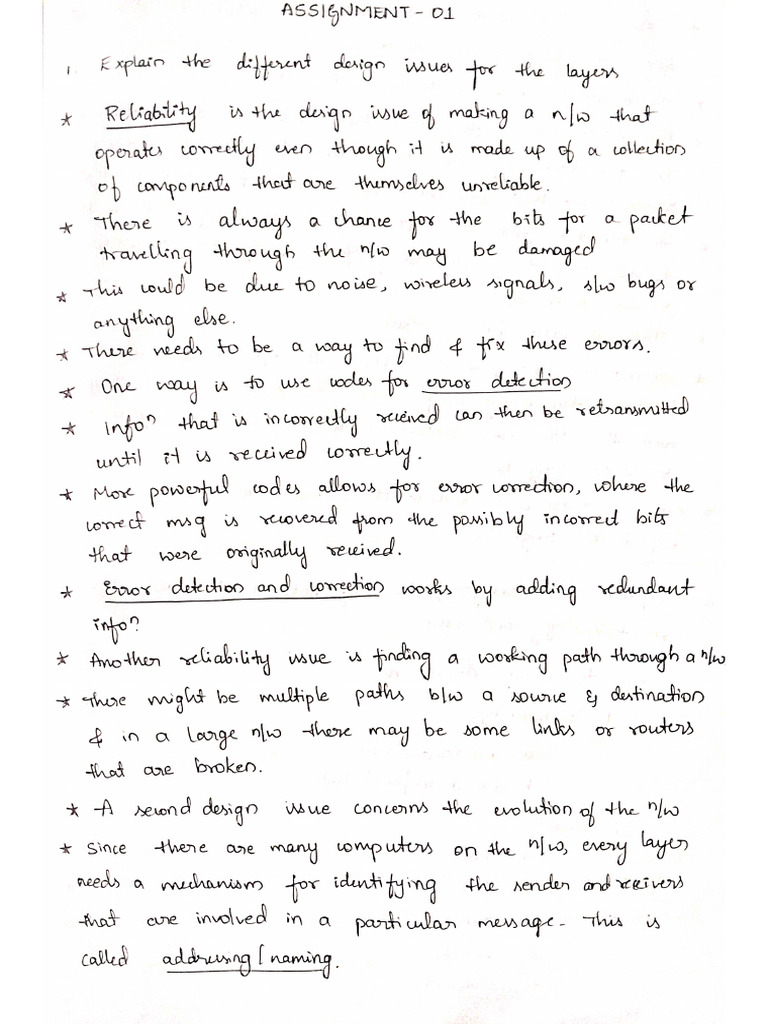 ASSIGNMENT - 01
1. Explain the different design issues for the layers
* Reliability is the design issue of making a n/w that
operates correctly even though it is made up of a collection
of components that are themselves unreliable.
* There is always a chance for the bits for a packet
travelling through the n/w may be damaged
* This could be due to noise, wireless signals, s/w bugs or
anything else.
* There needs to be a way to find & fix these errors.
* One way is to use codes for error detection
* Infoⁿ that is incorrectly received can then be retransmitted
until it is received correctly.
* More powerful codes allows for error correction, where the
correct msg is recovered from the possibly incorrect bits
that were originally received.
* Error detection and correction works by adding redundant
infoⁿ.
* Another reliability issue is finding a working path through a n/w
* There might be multiple paths b/w a source & destination
& in a large n/w there may be some links or routers
that are broken.
* A second design issue concerns the evolution of the n/w
* Since there are many computers on the n/w, every layer
needs a mechanism for identifying the sender and receivers
that are involved in a particular message. This is
called addressing/naming.